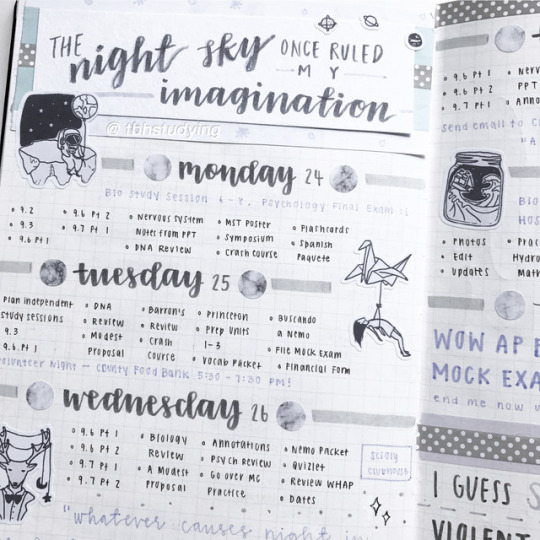 THE night sky ONCE RULED
MY
imagination
@tbhstudying
monday 24
Bio Study Session 4-8, Psychology Final Exam :(
9.2
9.3
9.6 Pt 1
9.6 Pt 2
9.7 Pt 1
Nervous System
Notes from PPT
DNA Review
MST Poster
Symposium
Crash Course
Flashcards
Spanish
Paquete
tuesday 25
Plan Independent
Study Sessions
9.3
9.6 Pt 1
DNA
Review
Modest
Proposal
Barron's
Review
Crash
Course
Princeton
Prep Units
1-3
Vocab Packet
Buscando
a Nemo
File Mock Exam
Financial Form
Volunteer Night - County Food Bank 5:30 - 7:30 PM!
wednesday 26
9.6 Pt 1
9.6 Pt 2
9.7 Pt 1
9.7 Pt 2
Biology
Review
A Modest
Proposal
Annotations
Psych Review
Go over MC
Practice
Nemo Packet
Quizlet
Review WHAP
Dates
SciOly
Clubhouse
"whatever causes night in
9.6 Pt 1
9.6 Pt 2
9.7 Pt 1
PPT
send email to
Photos
Edit
Updates
Math
WOW AP
MOCK EXA
end me now
I GUESS
VIOLENT